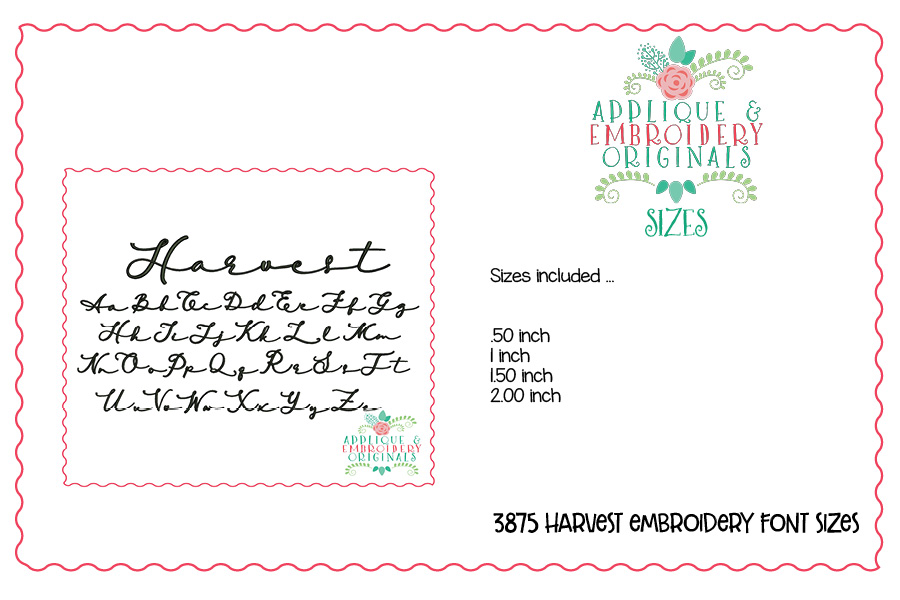 Harvest
Aa Bb Cc Dd Ee Ff Gg
Hh Ii Jj Kk Ll Mm
Nn Oo Pp Qq Rr Ss Tt
Uu Vv Ww Xx Yy Zz
APPLIQUE &
EMBROIDERY
ORIGINALS
APPLIQUE &
EMBROIDERY
ORIGINALS
SIZES
Sizes included ...
.50 inch
1 inch
1.50 inch
2.00 inch
3875 HARVEST EMBROIDERY FONT SIZES